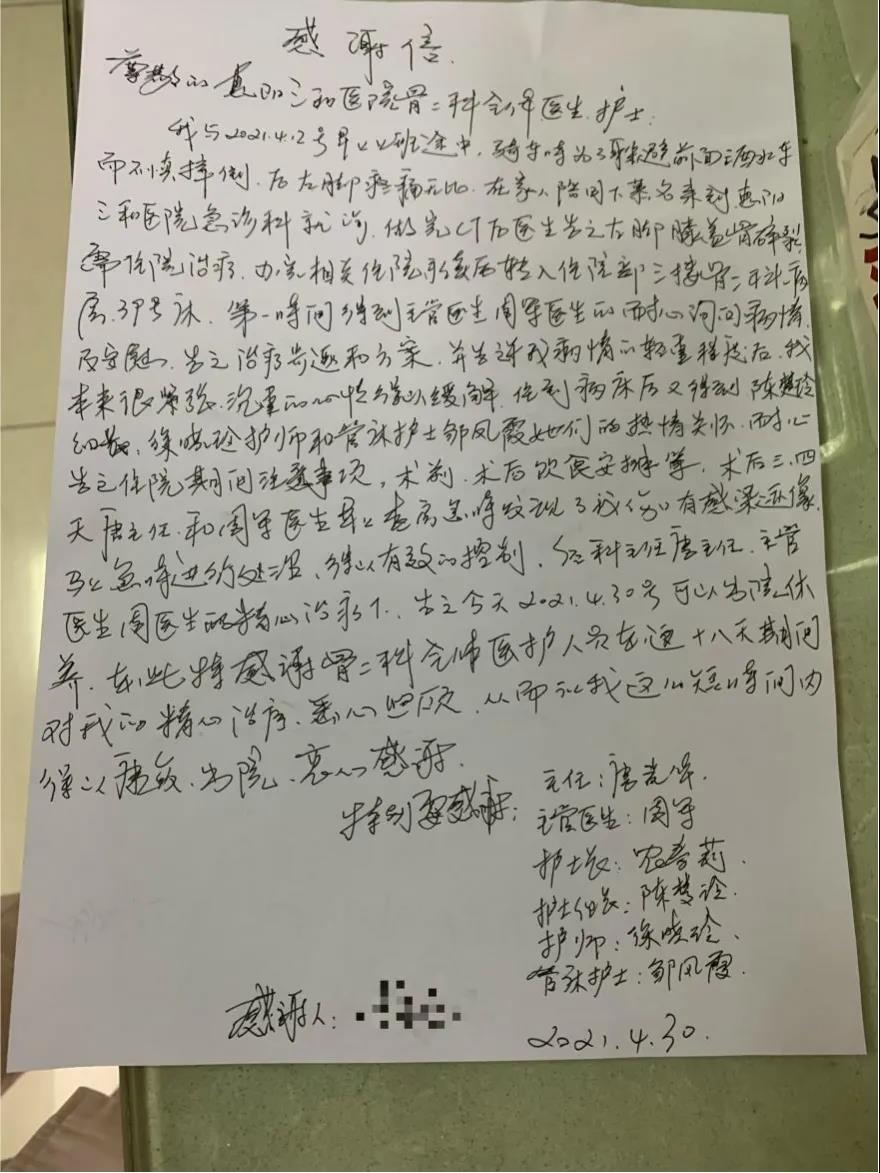 感谢信.
尊敬的惠阳三和医院骨二科全体医生.护士:
我与2021.4.12号早上上班途中,骑车时为了躲避前面洒水车
而不慎摔倒.后左脚疼痛无比.在家人陪同下慕名来到惠阳
三和医院急诊科就诊.做完CT后医生告之左脚膝盖骨碎裂
需住院治疗.办完相关住院手续后转入住院部三楼骨二科病
房.39号床.第一时间得到主管医生周军医生的耐心询问病情.
及安慰.告之治疗步逐和方案.并告诉我病情的轻重程度后.我
本来很紧张.沉重的心情得以缓解.住到病床后又得到陈楚玲
组长.徐晓玲护师和管床护士邹凤霞她们的热情关怀.耐心
告之住院其间注意事项,术前.术后饮食安排等.术后三.四
天唐主任.和周军医生早上查房急时发现了我伤口有感染迹像.
马上急时进行处理、得以有效的控制.经科主任唐主任.主管
医生周医生的精心治疗下.告之今天2021.4.30号可以出院休
养.在此特感谢骨二科全体医护人员在这十八天期间
对我的精心治疗.悉心照顾.从而让我这么短时间内
得以康复.出院.衷心感谢.
特别要感谢:
主任:唐 .
主管医生:周军
护士长: 莉.
护士组长:陈楚玲.
护师:徐晓玲、
管床护士:邹凤霞.
感谢人:
2021.4.30.